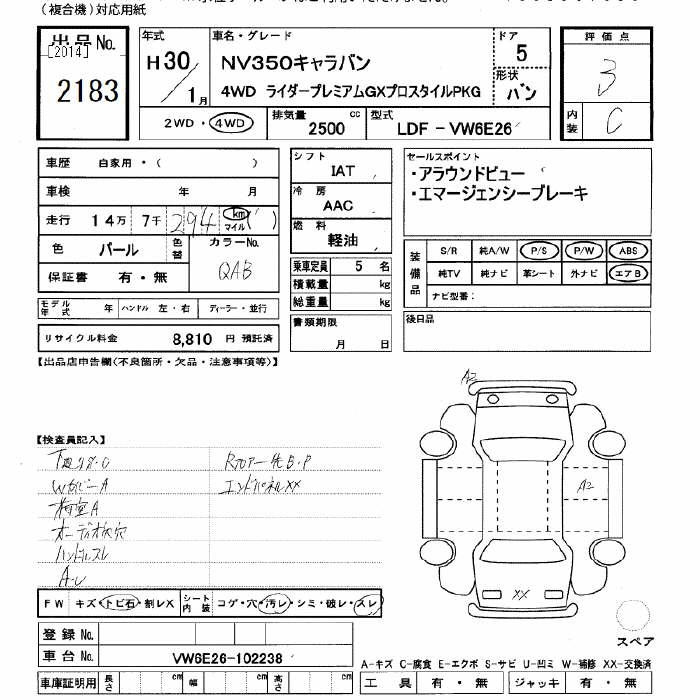 (複合機)対応用紙
出品No. [2014] 2183
年式 H30/1月
車名・グレード
NV350キャラバン
4WD ライダープレミアムGXプロスタイルPKG
ドア 5
形状 バン
評価点 3
内装 C
2WD・4WD 排気量 2500 cc 型式 LDF-VW6E26
車歴 自家用・( )
車検 年 月
走行 14万 7千 294 km マイル ( )
色 パール 色替 カラーNo. QAB
保証書 有・無
モデル年式 年 ハンドル 左・右 ディーラー・並行
リサイクル料金 8,810 円 預託済
シフト IAT
冷房 AAC
燃料 軽油
乗車定員 5 名
積載量 kg
総重量 kg
書類期限 月 日
セールスポイント
・アラウンドビュー
・エマージェンシーブレーキ
装備品 S/R 純A/W P/S P/W ABS
純TV 純ナビ 革シート 外ナビ エアB
ナビ型番:
後日品
【出品店申告欄(不良箇所・欠品・注意事項等)】
【検査員記入】
荷室A
ハンドルスレ
エンドパネルXX
A2
A2
XX
FW キズ・トビ石・割レX シート内装 コゲ・穴・汚レ・シミ・破レ・スレ
スペア
登録No.
車台No. VW6E26-102238
A-キズ C-腐食 E-エクボ S-サビ U-凹ミ W-補修 XX-交換済
車庫証明用 長さ cm 幅 cm 高さ cm
工具 有・無 ジャッキ 有・無